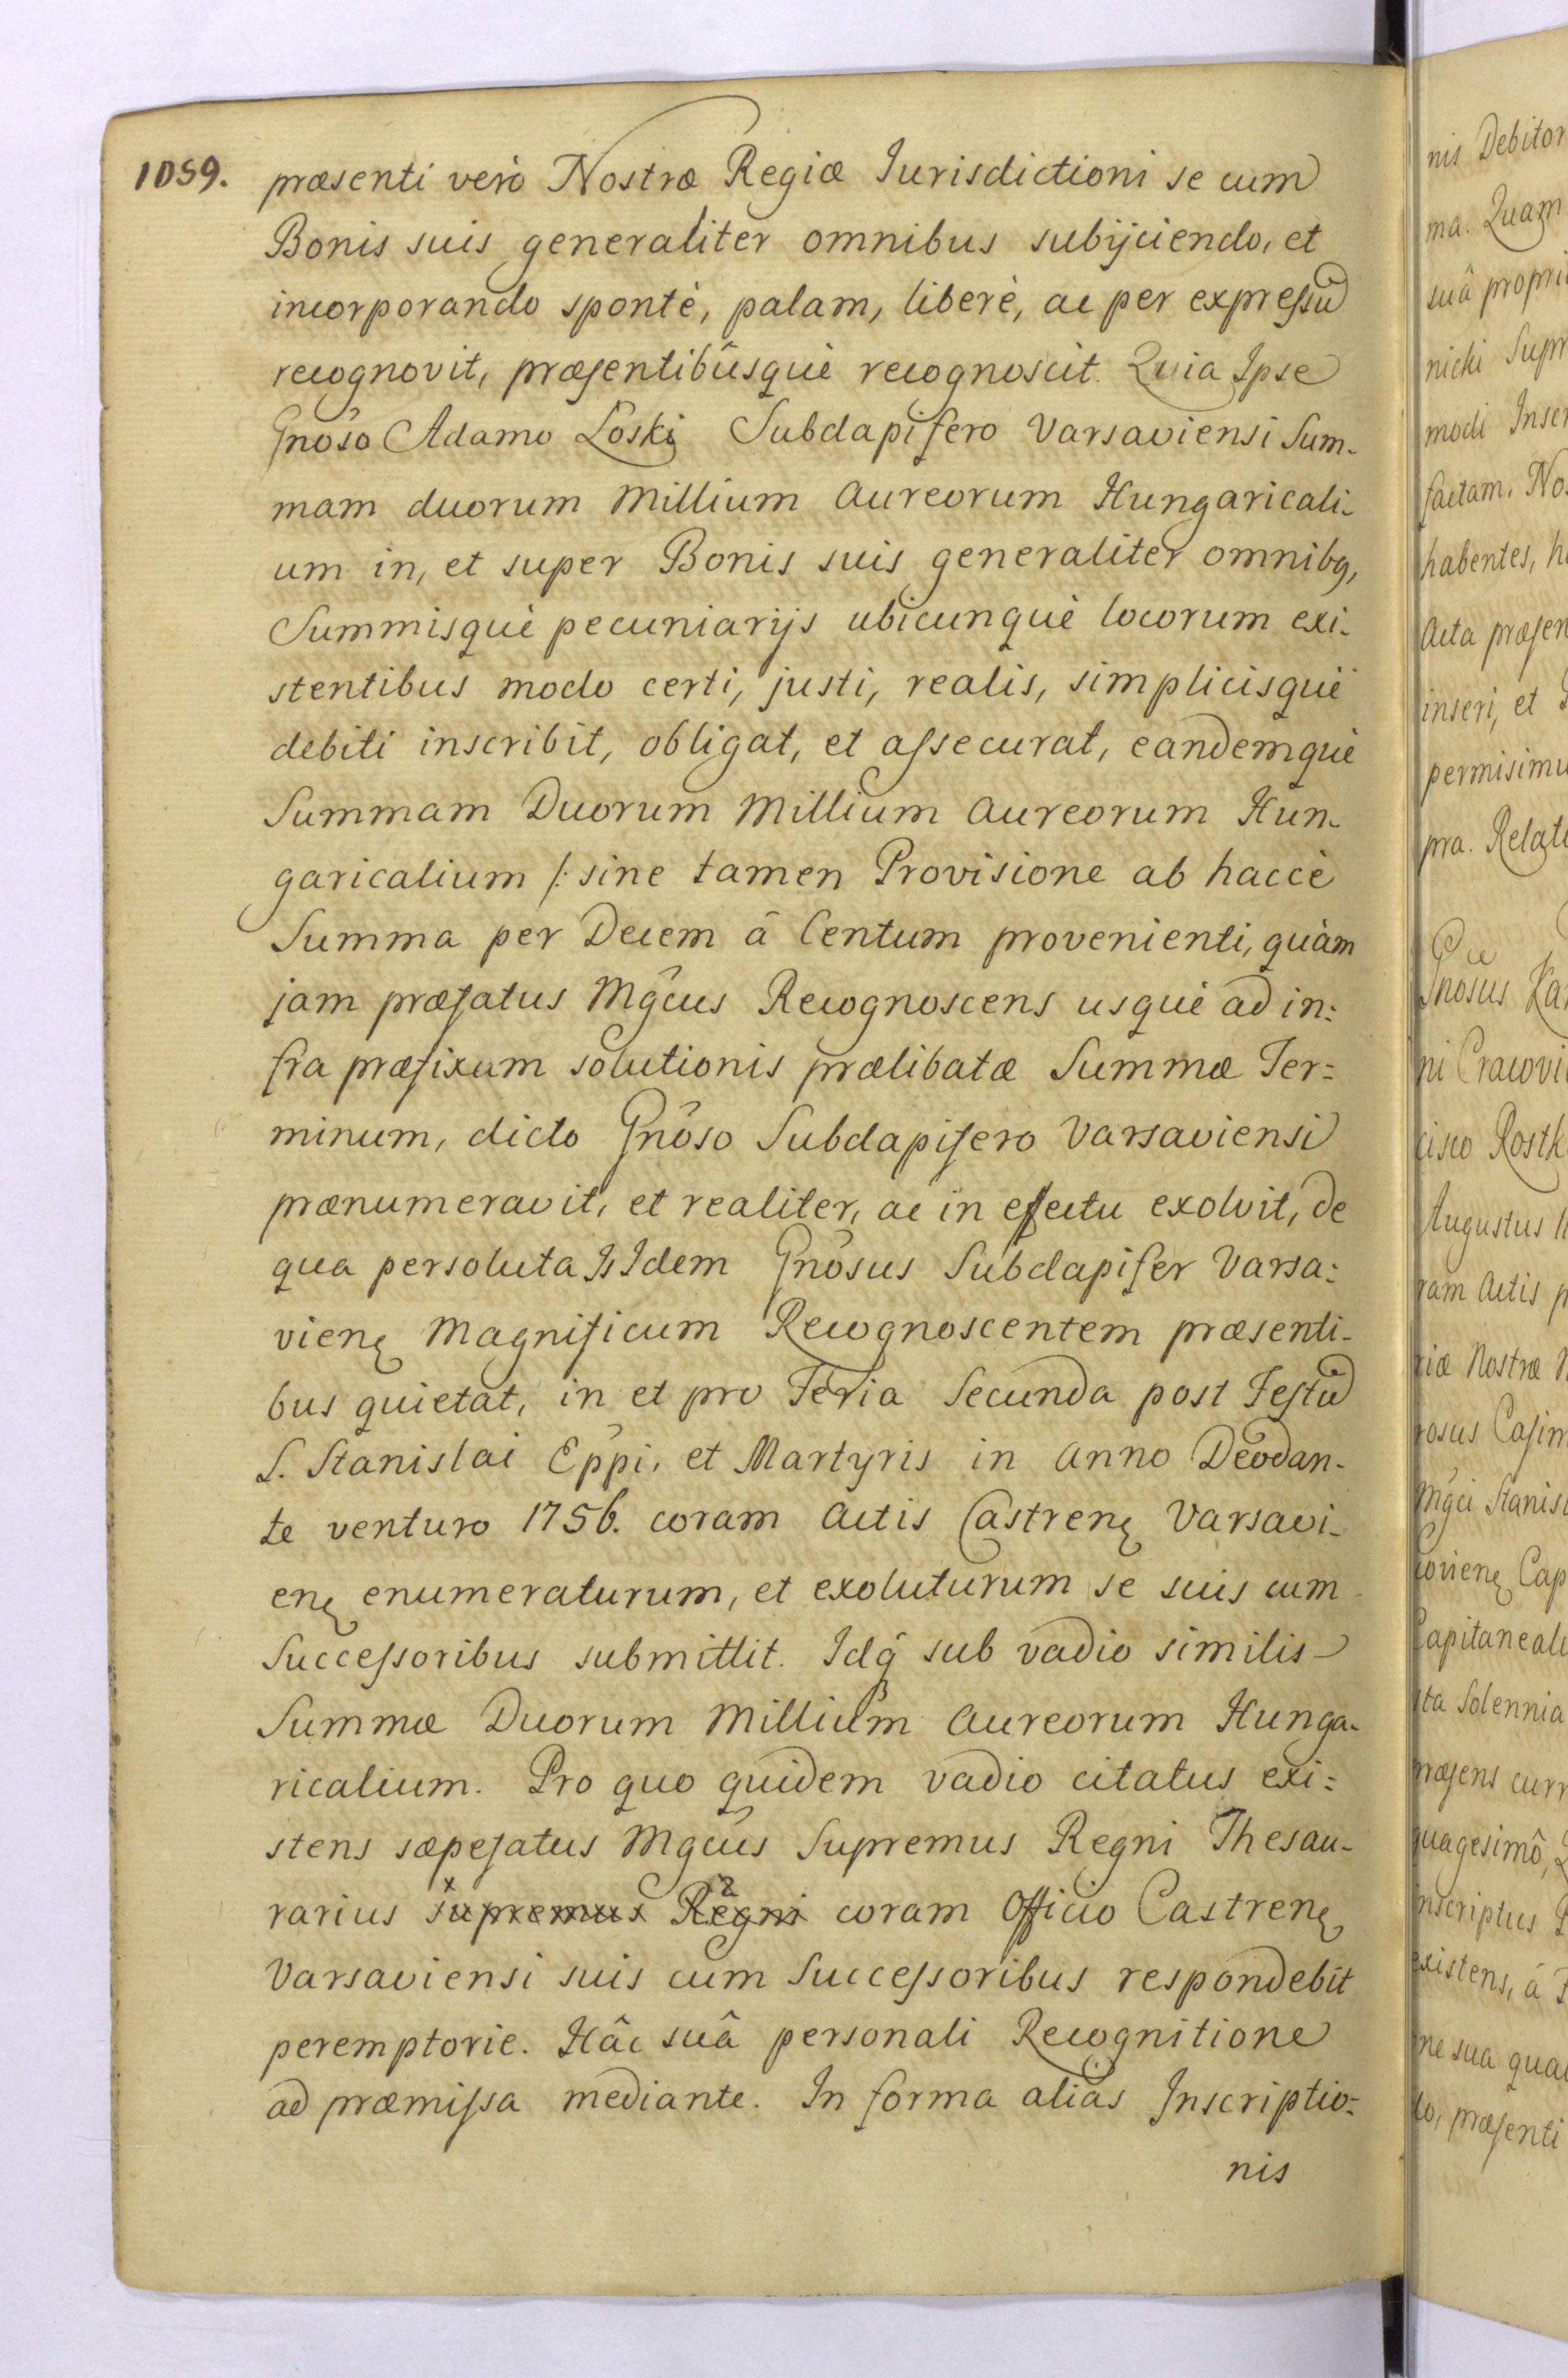 1059.
præsenti verò Nostræ Regiæ Iurisdictioni se cum
Bonis suis generaliter omnibus subijciendo, et
incorporando spontè, palam, liberè, ac per expreſsū
recognovit, præſentibûsquè recognoscit. Quia Ipse
Gnôso Adamo Łoski Subdapifero Varsaviensi Sum-
mam duorum Millium Aureorum Hungaricali-
um in, et super Bonis suis generaliter omnibꝯ,
Summisquè pecuniarijs ubicunquè locorum exi-
stentibus modo certi, justi, realis, simplicisquè
debiti inscribit, obligat, et aſsecurat, eandemquè
Summam Duorum Millium Aureorum Hun-
garicalium /: sine tamen Provisione ab haccè
Summa per Decem â Centum provenienti, quàm
jam præfatus Mgĉus Recognoscens usquè ad in:
fra præfixum solutionis prælibatæ Summæ Ter=
minum, dicto Gnôso Subdapifero Varsaviensi
prænumeravit, et realiter, ac in effectu exolvit, de
qua persoluta Is Idem Gnôsus Subdapifer Varsa:
vienę Magnificum Recognoscentem præsenti-
bus quietat, in et pro Feria Secunda post Feſtū
S. Stanislai Eppi, et Martyris in Anno Deôdan-
te venturo 1756. coram Actis Castrenę Varsavi-
enę enumeraturum, et exoluturum se suis cum
Succeſsoribus submittit. Idq̂ sub vadio similis
Summæ Duorum Millium Aureorum Hunga-
ricalium. Pro quo quidem vadio citatus exi:
stens sæpefatus Mgĉus Supremus Regni Thesau-
rarius supremus Regni coram Officio Castrenę
Varsaviensi suis cum Succeſsoribus respondebit
peremptorie. Hâc suâ personali Recognitione
ad præmiſsa mediante. In forma aliàs Inscriptio:
nis
nis Debitor
ma. Quam
suâ propri
nicki Supr
modi Inscr
factam, No
habentes, h
Acta præſen
inseri, et
permisimu
pra. Relati
Gnôsus Ka
ni Cracovi
cisco Rostk
Augustus
ram Actis p
riæ Nostræ
rosus Caſim
Mgĉi Stanis
covienę Cap
Capitaneali
ita Solennia
præſens curr
quagesimô,
Inscriptus
existens, â
ne sua qua
to, præſenti